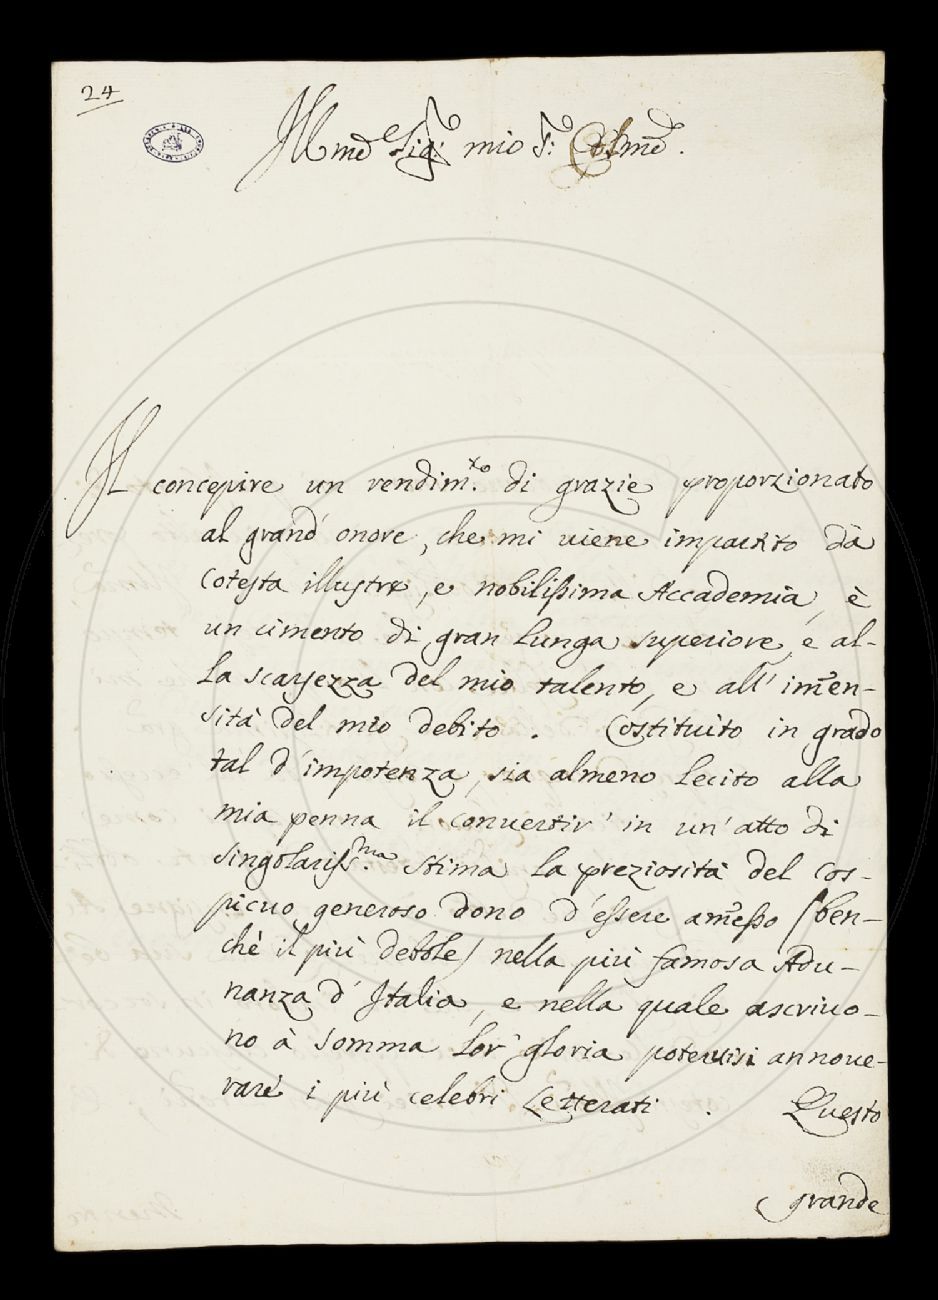 24
Illmo Sig.r mio S.r Colmo.
Il concepire un rendim.to di grazie proporzionato
al grand' onore, che mi viene impartito dà
cotesta illustre, e nobilissima Accademia, è
un cimento di gran lunga superiore, e al-
la scarsezza del mio talento, e all' im̃en-
sità del mio debito. Costituito in grado
tal d' impotenza, sia almeno lecito alla
mia penna il convertir' in un' atto di
singolariss.ma stima la preziosità del cos-
picuo, generoso dono d' essere am̃esso (ben-
chè il più debole) nella più famosa Adu-
nanza d' Italia, e nella quale ascrivo-
no à somma lor' gloria potervisi annove-
rare i più celebri Letterati. Questo
grande